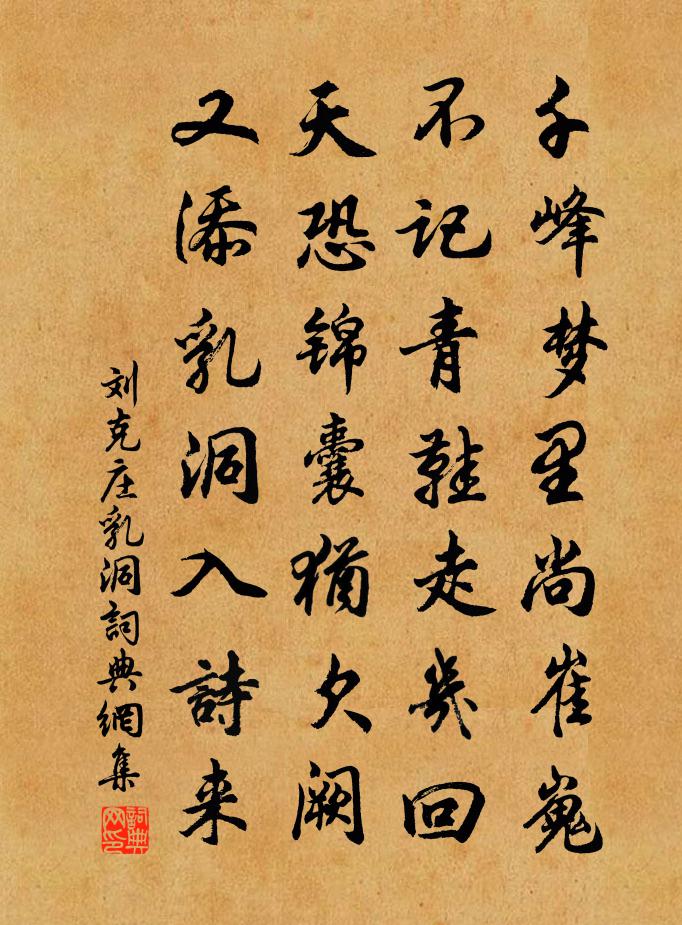 千峰梦里尚崔嵬
不记青鞋走几回
天恐锦囊犹欠阙
又添乳洞入詩来
刘克庄乳洞詞典網集
詞典網印